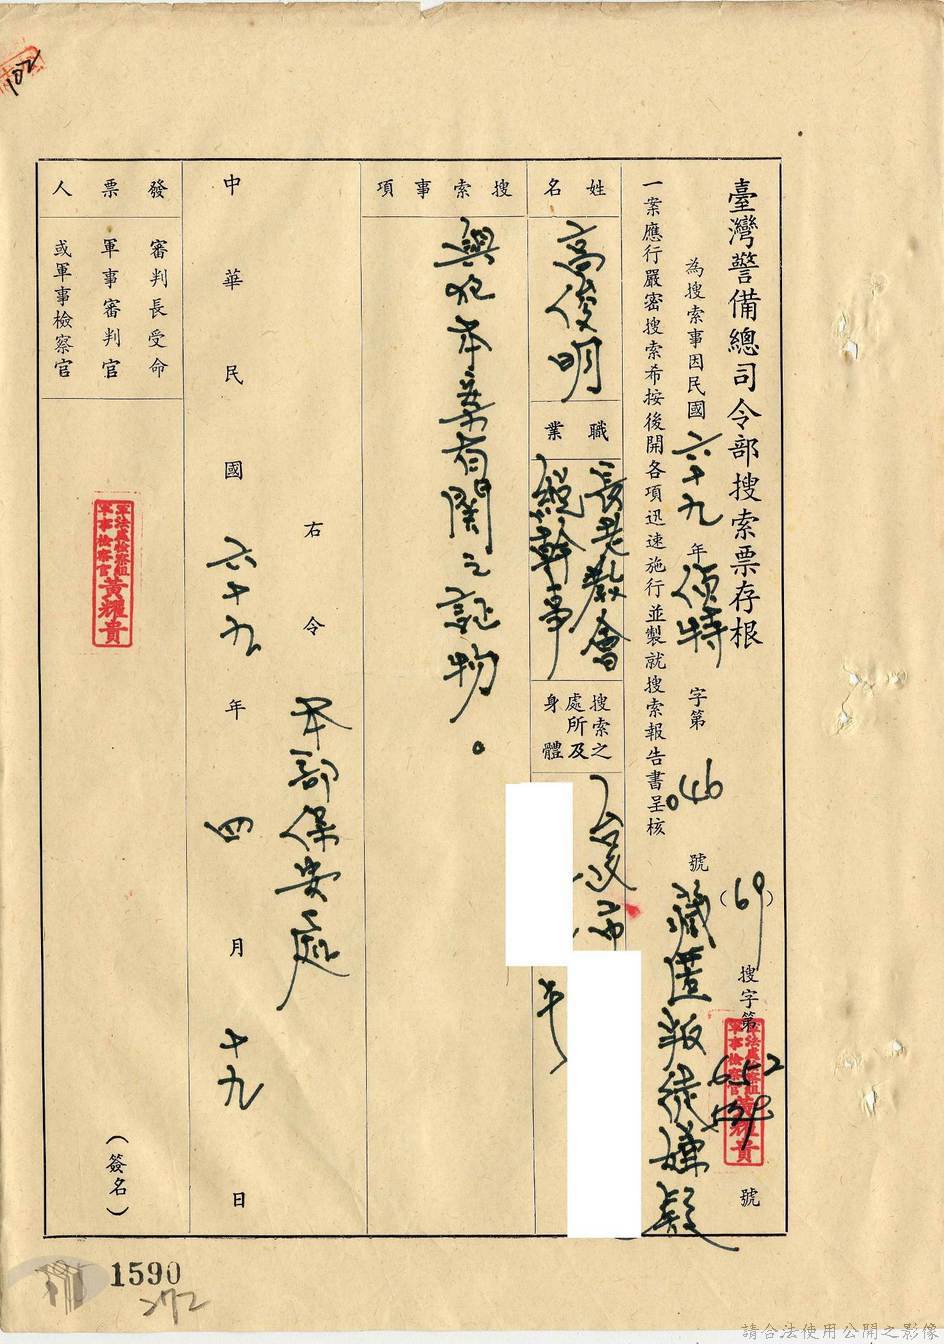 臺灣警備總司令部搜索票存根
(69)搜字第 652 號
為搜索事因民國六十九年偵特字第046號藏匿叛徒嫌疑
一案應行嚴密搜索希按後開各項迅速施行並製就搜索報告書呈核
姓名
高俊明
職業
長老教會
總幹事
搜索之
處所及
身體
搜索事項
與犯本案有關之証物。
右令
本部保安處
中華民國六十九年四月十九日
發票人
審判長受命
軍事審判官
或軍事檢察官
軍法處檢察組
軍事檢察官
黃耀貴
(簽名)
軍法處檢察組
軍事檢察官
黃耀貴
102
1590
272
請合法使用公開之影像